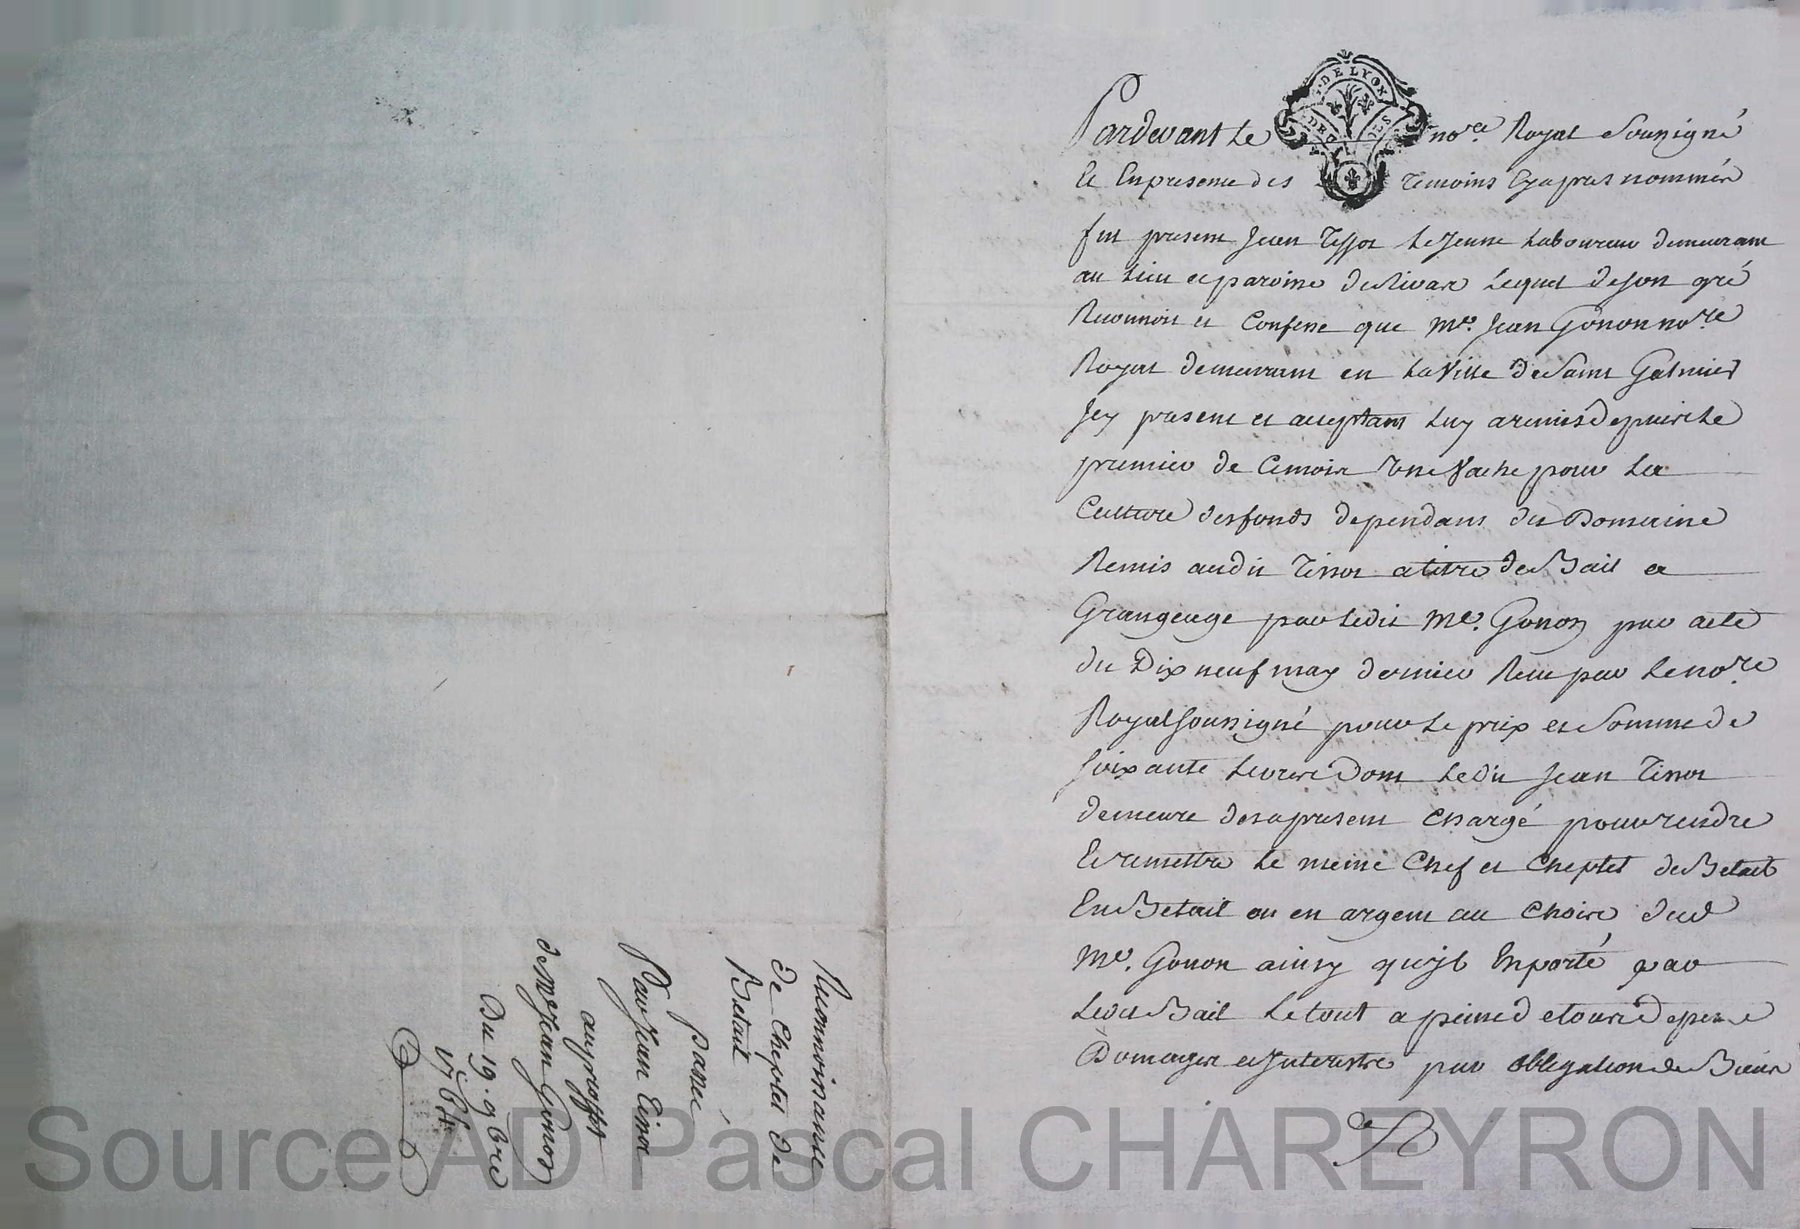 Pardevant Le nore. Royal Sousigné
Et En presence des Temoins Cyapres nommés
fut present Jean Tissot Le Jeune Laboureur demeurant
au Lieu et paroisse de Rivas Lequel de son gré
Reconnoit et Confesse que Me. Jean Gonon nore
Royal demeurant en La Ville de Saint Galmier
Jcy present et acceptant Luy a remis depuis Le
premier de Cemois Vne Vache pour La
Culture des fonds dependans du Domaine
Remis audit Tissot a titre de Bail a
Grangeage par Ledit Me. Gonon par acte
du Dix neuf may dernier Recu par Le nore
Royal soussigné pour Le prix et Somme de
soixante Livres Dont Ledit Jean Tissot
demeure des apresent Chargé pour rendre
Et remettre Le meme Chef et Cheptel de Betail
En Betail ou en argent au Choix dud
Me. Gonon ainsy qu'jl Enporté par
Led Bail Le tout a peine de tous depens
Domages et Jnterests par obligation de Biens
DE LYON
Reconnoissance
de Cheptel de
Betail
passée
Par Jean Tissot
au proffit
de Me Jean Gonon
Du 19. 9bre
Source AD Pascal CHAREYRON